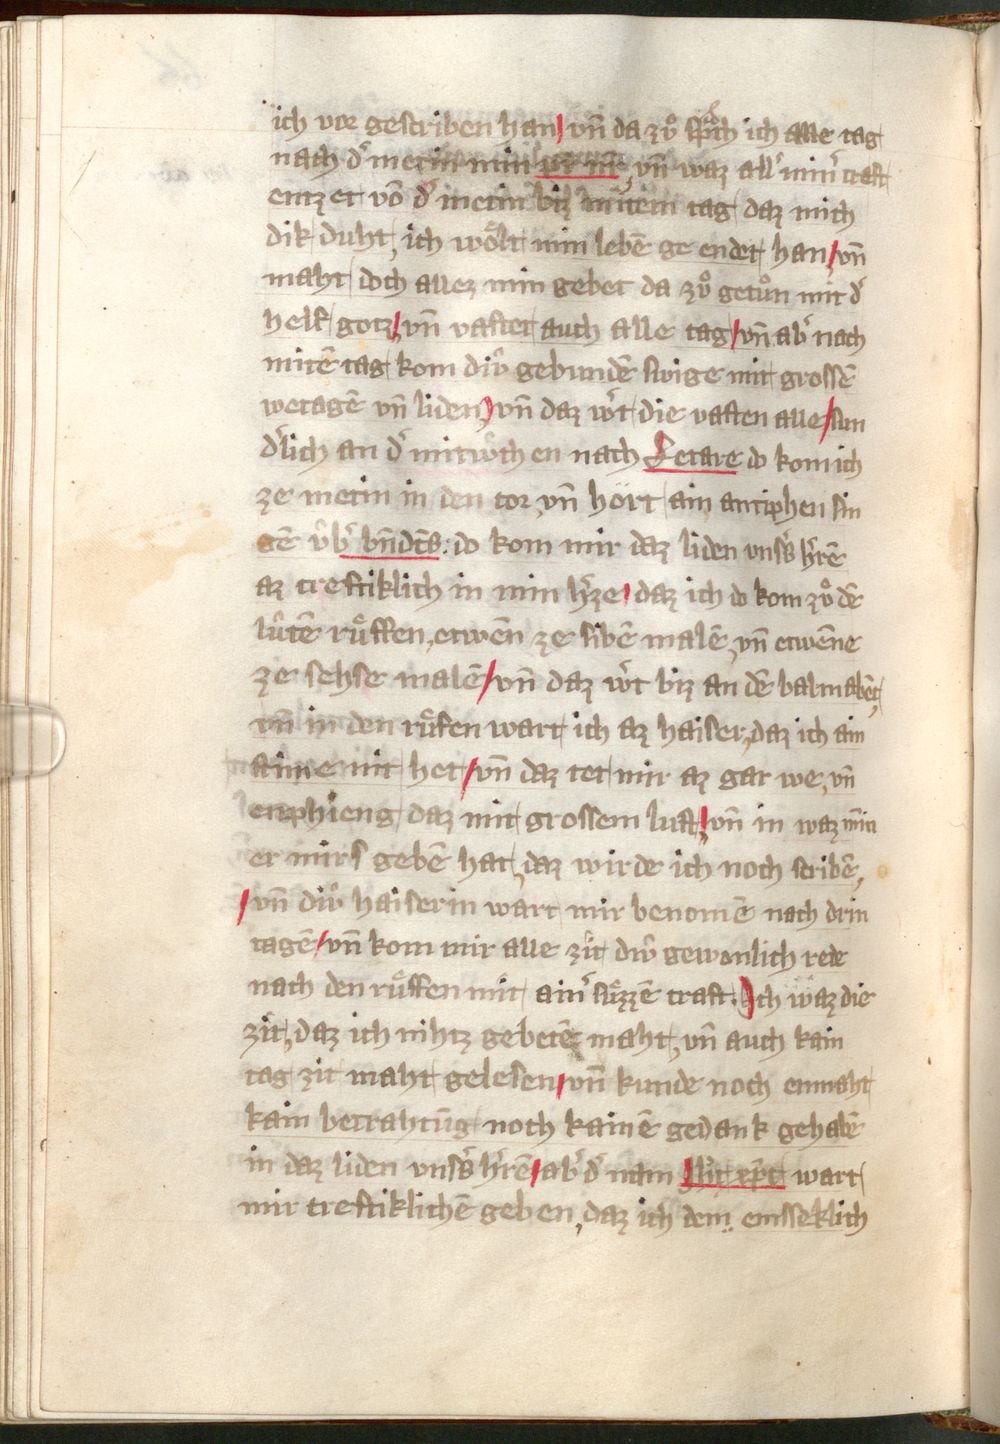 ich vor gescriben han / vn̄ da zuͦ sp̄ch ich alle tag
nach dˢ metin min pr̄ nr̄, vn̄ waz allˢ minˢ craft
entzet vō dˢ metin biz mittem tag daz mich
dik duht, ich woͤlt min lebē ge endet han / vn̄
maht doch allez min gebet da zuͦ getuͦn mit dˢ
helf gotz / vn̄ vastet auch alle tag / vn̄ abˢ nach
mitē tag kom diu̍ gebundē swige mit grossē
wetagē vn̄ liden / vn̄ daz wˢt die vasten alle / sun
dˢlich an dˢ mitwochen nach Letare do kom ich
ze metin in den cor, vn̄ hört ain antiphen sin
gē v̍bˢ bn̄dc̄s: do kom mir daz liden vnsˢs hˢrē
az creftiklich in min hˢze / daz ich do kom zuͦ dē
lu̍tē ruͤffen, etwēn ze sibē malē, vn̄ etwēne
ze sehse malē / vn̄ daz wˢt biz an dē balmabēt,
vn̄ in den ruͤfen wart ich az haiser, daz ich ain
stimme nit het / vn̄ daz tet mir az gar we, vn̄
enphieng daz mit grossem lust / vn̄ in waz min
er mirs gebē hat, daz wirde ich noch scribē,
/ vn̄ diu̍ haiserin wart mir benomē nach drin
tagē / vn̄ kom mir alle zit diu̍ gewonlich rede
nach den ruͤffen mit ainˢ suͤzzē craft. Ich waz die
zit, daz ich nihtz gebetē maht, vn̄ auch kain
tag zit maht gelesen / vn̄ kunde noch enmaht
kain betrahtūg noch kainē gedank gehabē
in daz liden vnsˢs hˢrē / abˢ dˢ nam Jhc̄ xp̄c wart
mir creftiklichē geben, daz ich dem emsseklich